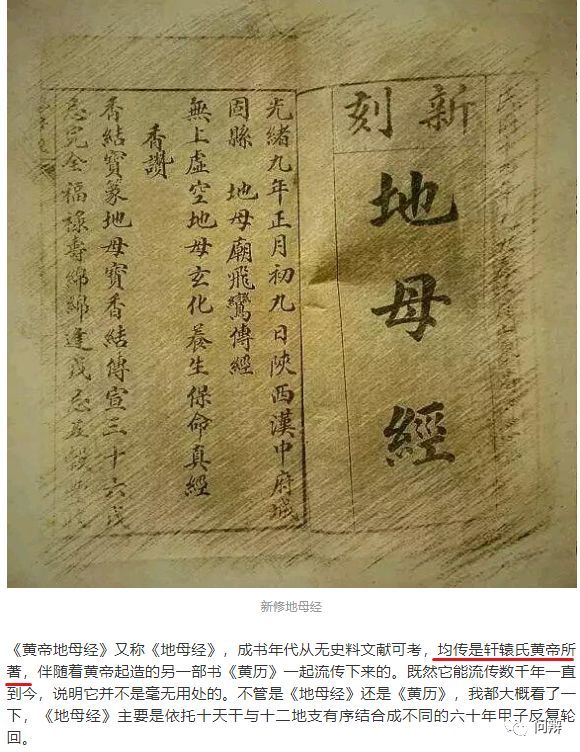 新刻
地母經
光緒九年正月初九日陝西漢中府城
固縣 地母廟飛鸞傳經
無上虛空地母玄化養生保命真經
香讚
香結寶篆地母寶香結傳宣三十六戊
忌完全福祿壽綿綿逢戊忌五穀豐
新修地母经
《黄帝地母经》又称《地母经》，成书年代从无史料文献可考，均传是轩辕氏黄帝所
著，伴随着黄帝起造的另一部书《黄历》一起流传下来的。既然它能流传数千年一直
到今，说明它并不是毫无用处的。不管是《地母经》还是《黄历》，我都大概看了一
下，《地母经》主要是依托十天干与十二地支有序结合成不同的六十年甲子反复轮
回。
问辨